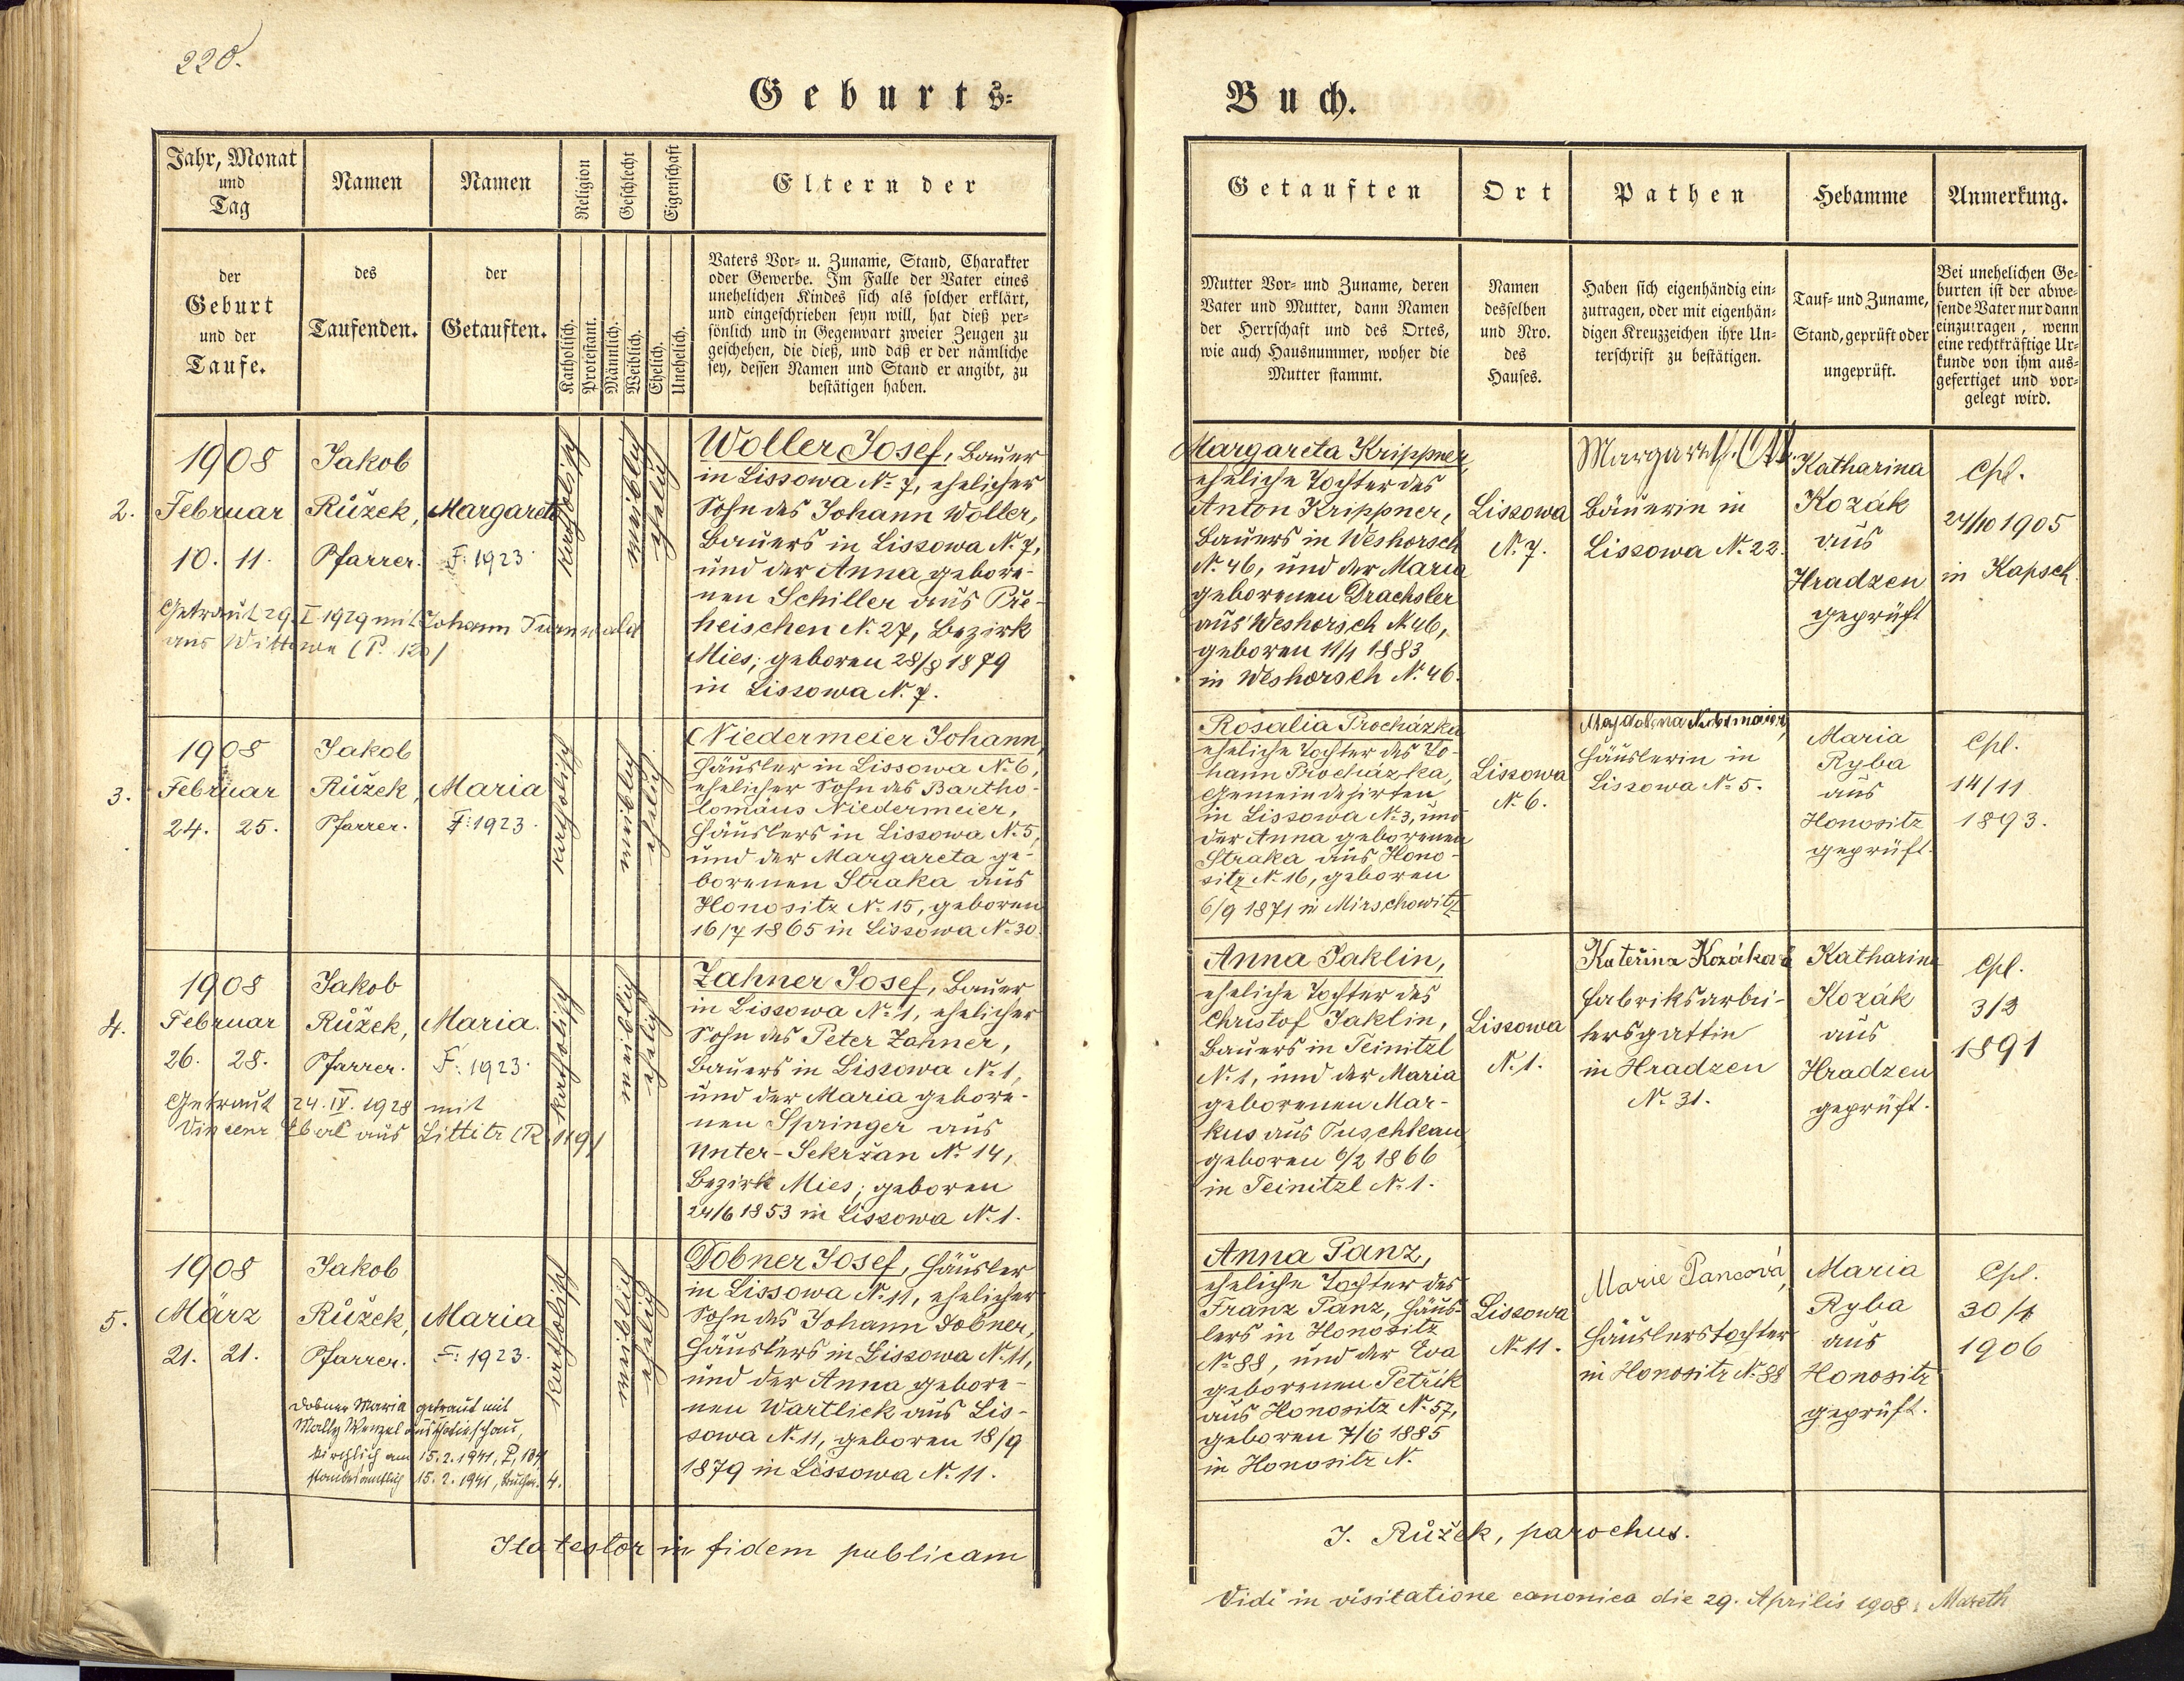 220.
Geburts-
Jahr, Monat
und
Tag
Namen
Namen
Religion
Geschlecht
Eigenschaft
Eltern der
der
Geburt
und der
Taufe.
des
Taufenden.
der
Getauften.
Katholisch.
Protestant.
Männlich.
Weiblich.
Ehelich.
Unehelich.
Vaters Vor- u. Zuname, Stand, Charakter
oder Gewerbe. Im Falle der Vater eines
unehelichen Kindes sich als solcher erklärt,
und eingeschrieben seyn will, hat dieß per-
sönlich und in Gegenwart zweier Zeugen zu
geschehen, die dieß, und daß er der nämliche
sey, dessen Namen und Stand er angibt, zu
bestätigen haben.
2.
1908
Februar
10. 11.
Jakob
Růžek,
Pfarrer.
Margareta
F: 1923
katholisch
weiblich
ehelich
Getraut 29. I 1929 mit Johann Turnwald
aus Wittowa (P. 120)
Woller Josef, Bauer
in Lissowa N. 7, ehelicher
Sohn des Johann Woller,
Bauers in Lissowa N. 7,
und der Anna gebore-
nen Schiller aus Pře-
heischen N. 27, Bezirk
Mies; geboren 28/8 1879
in Lissowa N. 7.
3.
1908
Februar
24. 25.
Jakob
Růžek,
Pfarrer.
Maria
F: 1923.
katholisch
weiblich
ehelich
Niedermeier Johann,
Häusler in Lissowa N. 6,
ehelicher Sohn des Bartho-
lomäus Niedermeier,
Häuslers in Lissowa N. 5,
und der Margareta ge-
borenen Straka aus
Honositz N. 15, geboren
16/7 1865 in Lissowa N. 30.
4.
1908
Februar
26. 28.
Jakob
Růžek,
Pfarrer.
Maria.
F: 1923.
katholisch
weiblich
ehelich
Getraut 24. IV. 1928 mit
Vincenz Eberl aus Littitz (P. 119)
Zahner Josef, Bauer
in Lissowa N. 1, ehelicher
Sohn des Peter Zahner,
Bauers in Lissowa N. 1,
und der Maria gebore-
nen Springer aus
Unter-Sekržan N. 14,
Bezirk Mies; geboren
24/6 1853 in Lissowa N. 1.
5.
1908
März
21. 21.
Jakob
Růžek,
Pfarrer.
Maria
F: 1923.
katholisch
weiblich
ehelich
Dobner Maria getraut mit
Mally Wenzel aus
kirchlich am 15. 2. 1941, P. 104
standesamtlich 15. 2. 1941, 4.
Dobner Josef, Häusler
in Lissowa N. 11, ehelicher
Sohn des Johann Dobner,
Häuslers in Lissowa N. 11,
und der Anna gebore-
nen Wartlick aus Lis-
sowa N. 11, geboren 18/9
1879 in Lissowa N. 11.
Ita testor in fidem publicam
Buch.
Getauften
Ort
Pathen
Hebamme
Anmerkung.
Mutter Vor- und Zuname, deren
Vater und Mutter, dann Namen
der Herrschaft und des Ortes,
wie auch Hausnummer, woher die
Mutter stammt.
Namen
desselben
und Nro.
des
Hauses.
Haben sich eigenhändig ein-
zutragen, oder mit eigenhän-
digen Kreuzzeichen ihre Un-
terschrift zu bestätigen.
Tauf- und Zuname,
Stand, geprüft oder
ungeprüft.
Bei unehelichen Ge-
burten ist der abwe-
sende Vater nur dann
einzutragen, wenn
eine rechtkräftige Ur-
kunde von ihm aus-
gefertiget und vor-
gelegt wird.
Margareta Krippner,
eheliche Tochter des
Anton Krippner,
Bauers in Weshorsch
N. 46, und der Maria
geborenen Drachsler
aus Weshorsch N 46,
geboren 11/4 1883
in Weshorsch N. 46.
Lissowa
N. 7.
Margareth Ott.
Bäuerin in
Lissowa N. 22.
Katharina
Kozák
aus
Hradzen
geprüft
Cpl.
24/10 1905
in Kapsch.
Rosalia Procházka
eheliche Tochter des Jo-
hann Procházka,
Gemeindehirten
in Lissowa N. 3, und
der Anna geborenen
Straka aus Hono-
sitz N. 16, geboren
6/9 1871 in Mirschowitz
Lissowa
N. 6.
Magdalena
Häuslerin in
Lissowa N. 5.
Maria
Ryba
aus
Honositz
geprüft.
Cpl.
14/11
1893.
Anna Jaklin,
eheliche Tochter des
Christof Jaklin,
Bauers in Teinitzl
N. 1, und der Maria
geborenen Mar-
kus aus Tuschkau
geboren 6/2 1866
in Teinitzl N. 1.
Lissowa
N. 1.
Kateřina Kozáková
Fabriksarbei-
tersgattin
in Hradzen
N. 31.
Katharina
Kozák
aus
Hradzen
geprüft.
Cpl.
3/2
1891
Anna Panz,
eheliche Tochter des
Franz Panz, Häus-
lers in Honositz
N. 88, und der Eva
geborenen Petřik
aus Honositz N. 57,
geboren 7/6 1885
in Honositz N.
Lissowa
N. 11.
Marie Pancová,
Häuslerstochter
in Honositz N. 88
Maria
Ryba
aus
Honositz
geprüft.
Cpl.
30/4
1906
J. Růžek, parochus.
Vidi in visitatione canonica die 29. Aprilis 1908.